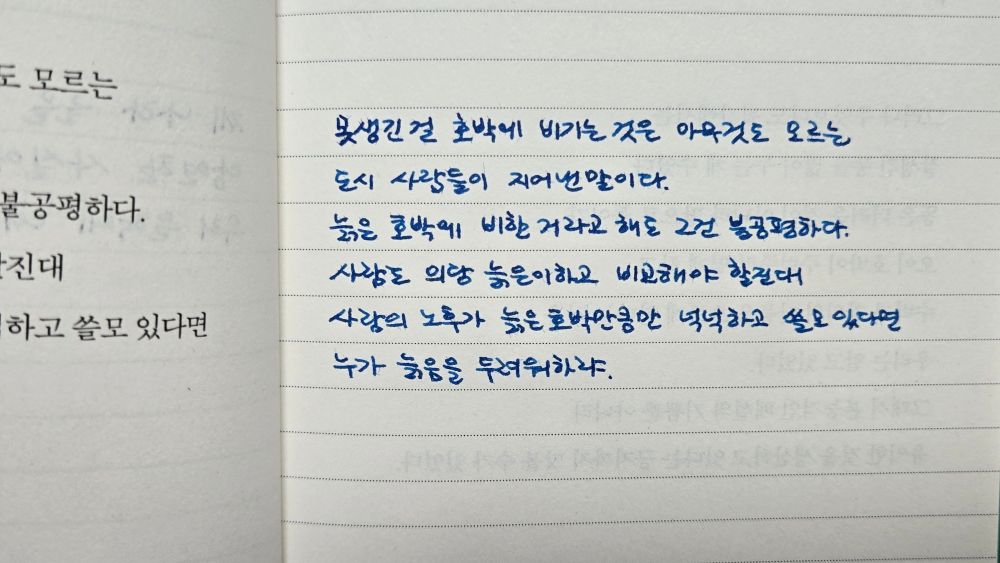 도 모르는
불공평하다.
진대
하고 쓸모 있다면
못생긴 걸 호박에 비기는 것은 아무것도 모르는
도시 사람들이 지어낸 말이다.
늙은 호박에 비한 거라고 해도 그건 불공평하다.
사람도 의당 늙은이하고 비교해야 할진대
사람의 노후가 늙은 호박만큼만 넉넉하고 쓸모 있다면
누가 늙음을 두려워하랴.